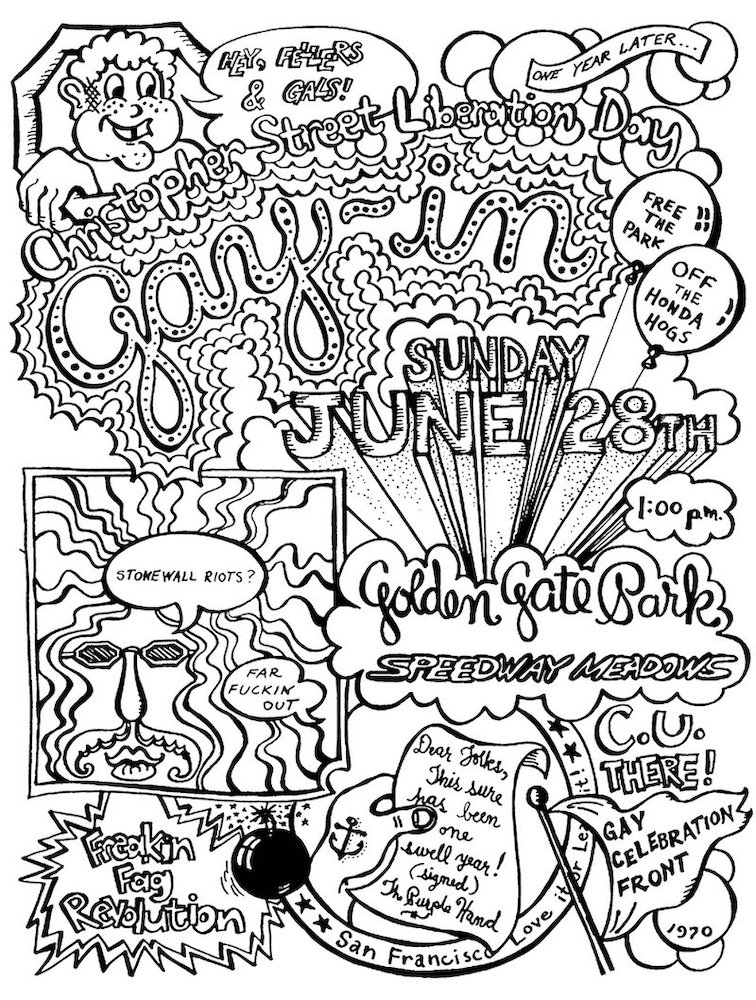 HEY, FELLERS
& GALS!
ONE YEAR LATER...
Christopher Street Liberation Day
Gay-in
FREE
THE
PARK
!!
OFF
THE
HONDA
HOGS
SUNDAY
JUNE 28TH
1:00 p.m.
Golden Gate Park
SPEEDWAY MEADOWS
STONEWALL RIOTS?
FAR
FUCKIN'
OUT
C.U.
THERE!
Dear Folks,
This sure
has been
one
swell year!
(signed)
The Purple Hand
GAY
CELEBRATION
FRONT
Freakin
Fag
Revolution
San Francisco Love it or Lea it!
1970